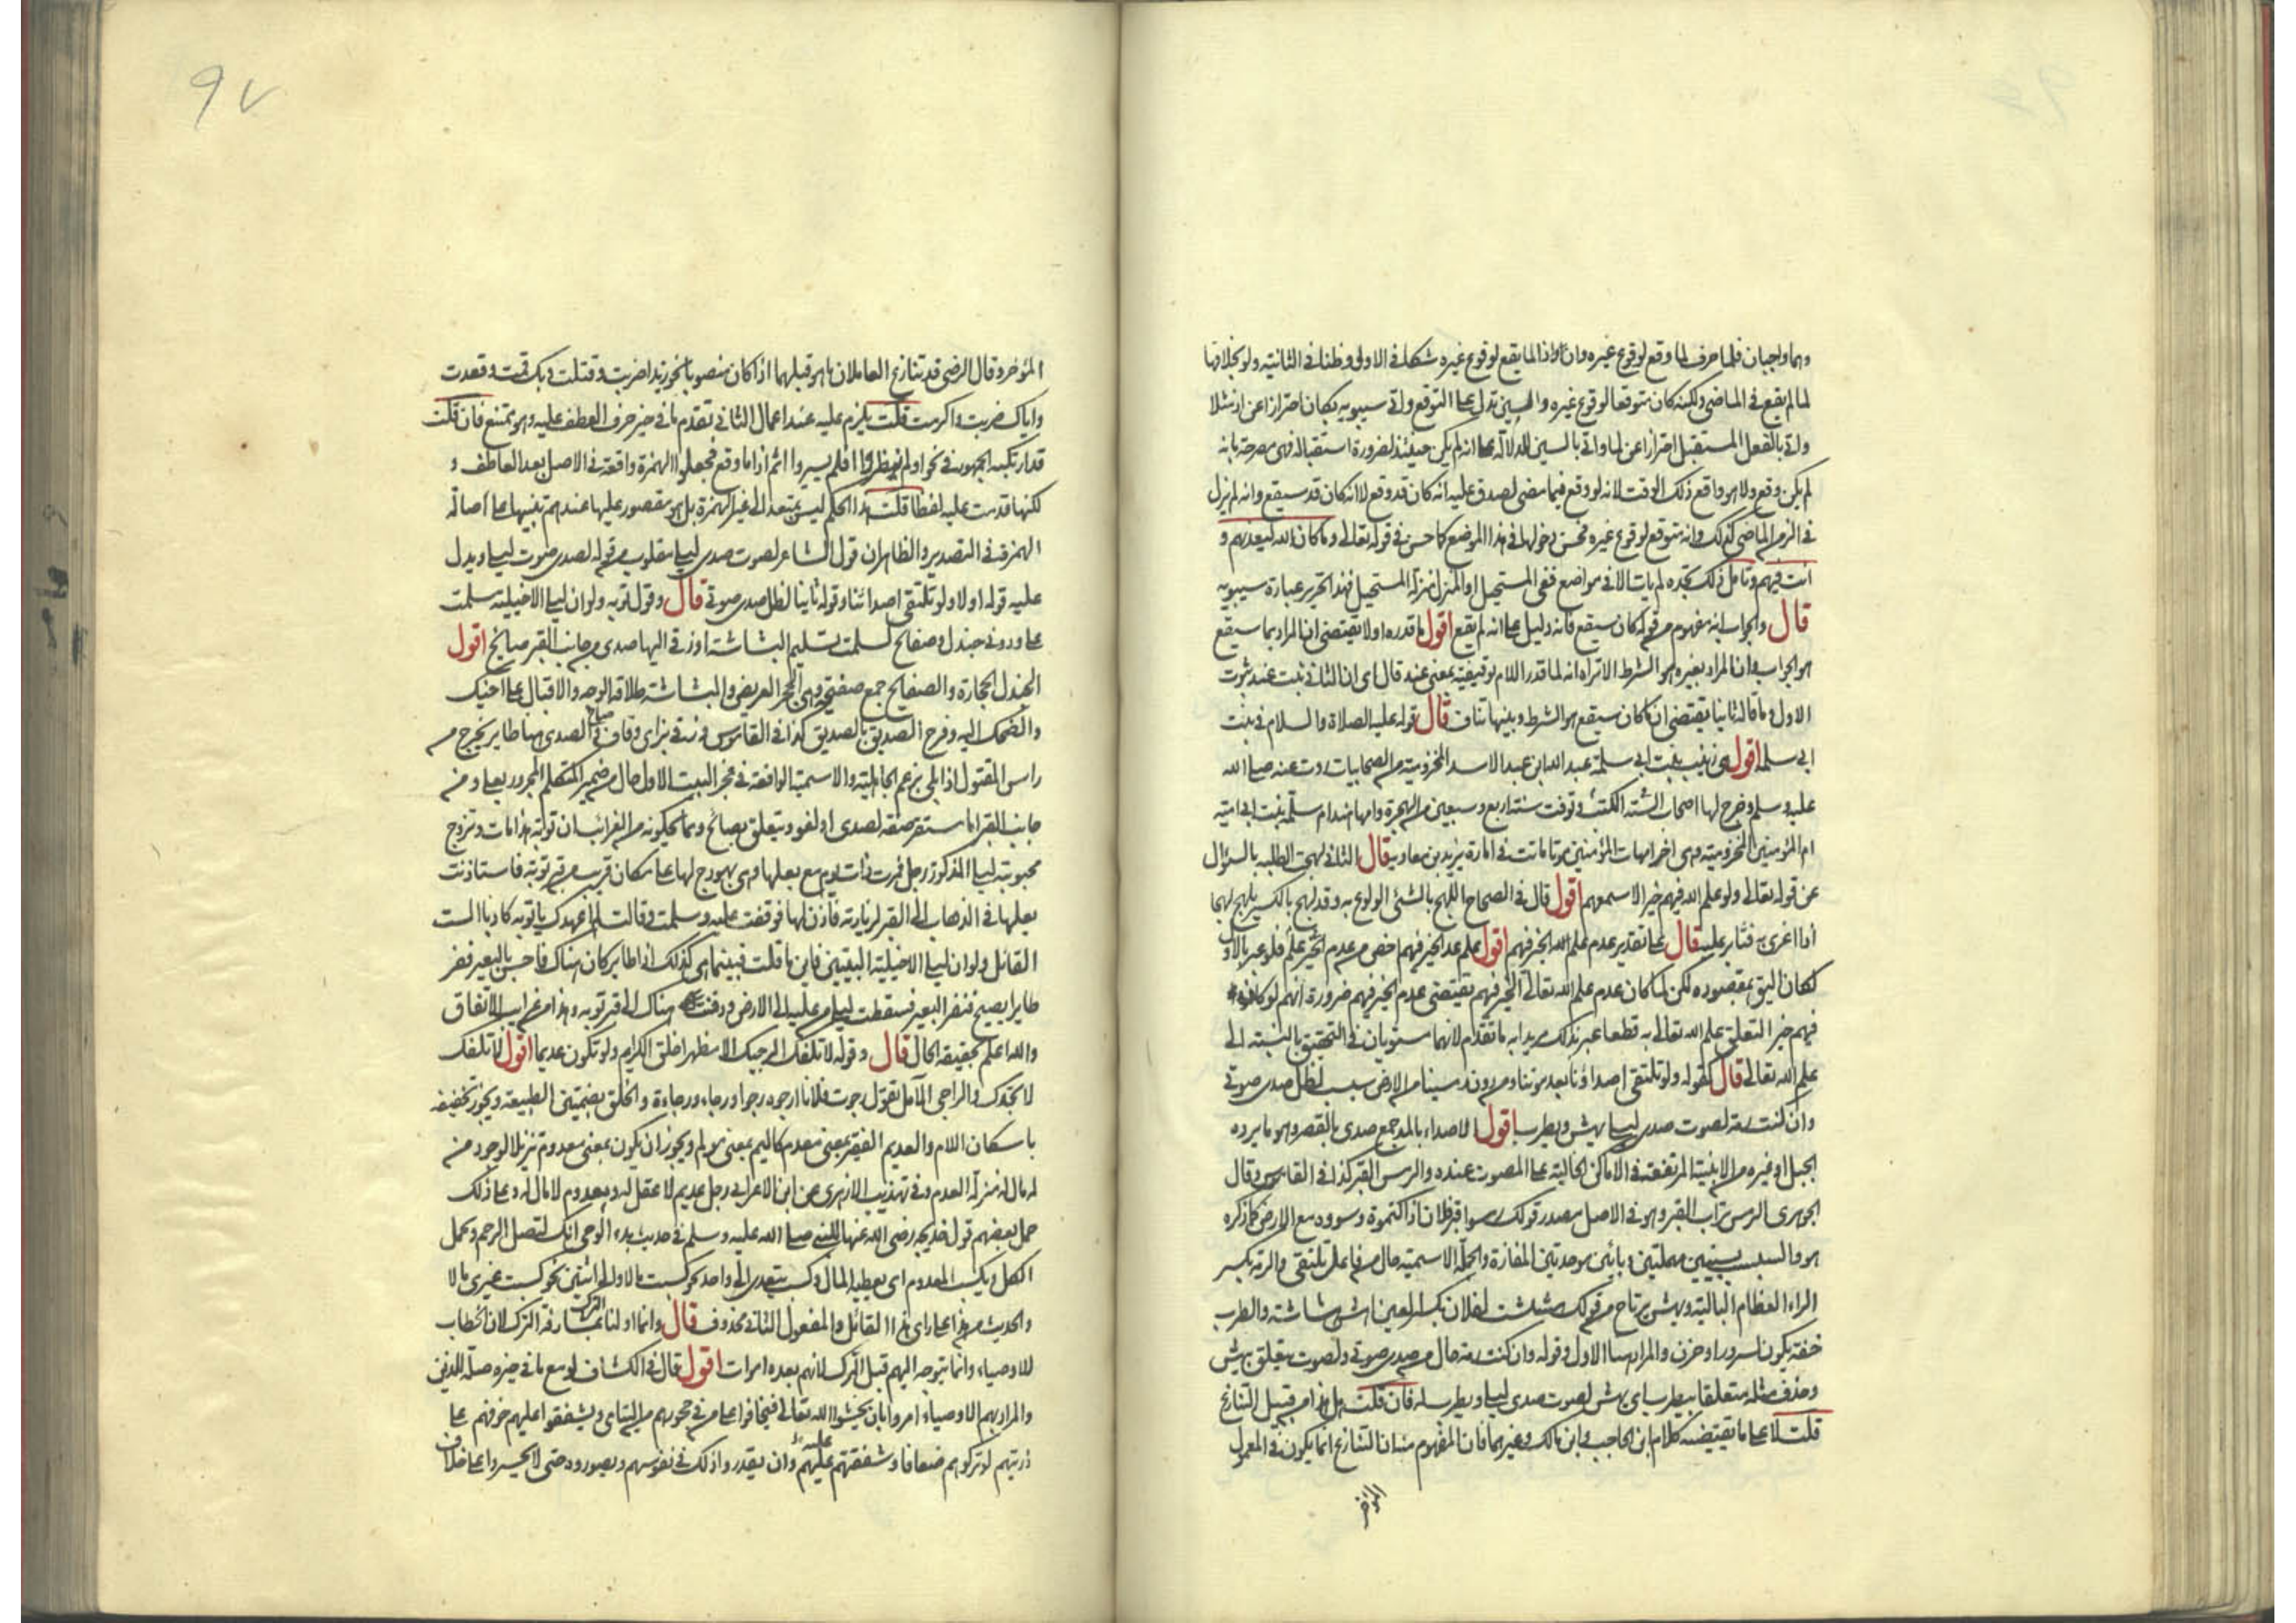 وهما واجبان فلما حرف لما وقع لوقوع غيره وان واذا لما يقع لوقوع غيره شكا في الاولى وظنا في الثانية ولو بخلافها
لما لم يقع في الماضي ولكنه كان متوقعا لوقوع غيره والسين تدل على التوقع واتى سيبويه بكان احترازا عن اذ مثلا
واتى بالفعل المستقبل احترازا عن لما واتى بالسين للدلالة على انه لم يكن حينئذ لضرورة استقباله فهي مصرحة بانه
لم يكن وقع ولا هو واقع ذلك الوقت لانه لو وقع فيما مضى لصدق عليه انه كان قد وقع لا انه كان قد سيقع وانه لم يزل
في الزمن الماضي كذلك وانه متوقع لوقوع غيره فحسن دخولها في هذا الموضع كما حسن في قوله تعالى وما كان الله ليعذبهم و
انت فيهم وتامل ذلك تجده لم يات الا في مواضع ففي المستحيل او المنزل منزلة المستحيل فهذا تحرير عبارة سيبويه
قال والجواب انه مفهوم من قوله كان سيقع فانه دليل على انه لم يقع اقول ما قدره اولا يقتضي ان المراد بما سيقع
هو الجواب وان المراد بغيره هو الشرط الا تراه انه لما قدر اللام توقيفية بمعنى عند قال اى ان الثاني ثبت عند ثبوت
الاول وما قاله ثانيا يقتضي ان كان سيقع هو الشرط وبينهما تناف قال قوله عليه الصلاة والسلام في بنت
ابي سلمة اقول هي زينب بنت ابي سلمة عبد الله ابن عبد الاسد المخزومية من الصحابيات روت عنه صلى الله
عليه وسلم وخرج لها اصحاب الستة الكتب وتوفت سنة اربع وسبعين من الهجرة وامها هند ام سلمة بنت ابي امية
ام المؤمنين المخزومية وهي اخر امهات المؤمنين موتا ماتت في امارة يزيد بن معاوية قال الثاني لهجت الطلبة بالسؤال
عن قوله تعالى ولو علم الله فيهم خيرا لاسمعهم اقول قال في الصحاح اللهج بالشئ الولوع به وقد لهج بالكسر يلهج لهجا
اذا اغرى به فثابر عليه قال على تقدير عدم علم الله الخير فيهم اقول علم عدم الخير فيهم اخص من عدم الخير علم فلو عبر بالاول
لكان اليق بمقصوده لكن لما كان عدم علم الله تعالى الخير فيهم يقتضي عدم الخير فيهم ضرورة انهم لو كان
فيهم خير التعلق علم الله تعالى به قطعا عبر بذلك مريدا به ما تقدم لانهما مستويان في التحقيق بالنسبة الى
علم الله تعالى قال كقوله ولو تلتقي اصداؤنا بعد موتنا ومن دون رمسينا من الارض سبسب لظل صدى صوتي
وان كنت رمة لصوت صدى ليلى يهش ويطرب اقول الاصداء بالمد جمع صدى بالقصر وهو ما يرده
الجبل او غيره من الابنية المرتفعة في الاماكن الخالية على المصوت عنده والرمس القبر كذا في القاموس وقال
الجوهري الرمس تراب القبر وهو في الاصل مصدر قولك رمسوا قبر فلان اذا كتموه وسووه مع الارض كما ذكره
هو والسبسب بسينين مهملتين وبائين موحدتين المفازة والجملة الاسمية حال من فاعل تلتقي والرمة بكسر
الراء العظام البالية ويهش يرتاح من قولك هششت لفلان بكسر العين اهش هشاشة والطرب
خفة يكون لسرور او حزن والمراد هنا الاول وقوله وان كنت رمة حال من صدى صوتي ولصوت متعلق بيهش
وحذف مثله متعلقا بيطرب اى يهش لصوت صدى ليلى ويطرب له فان قلت هل هذا من قبيل التنازع
قلت لا على ما يقتضيه كلام ابن الحاجب وابن مالك وغيرهما فان المفهوم منه ان التنازع انما يكون في المعمول
المؤخر
97
المؤخر وقال الرضي قد يتنازع العاملان ما هو قبلهما اذا كان منصوبا نحو زيدا ضربت وقتلت وبك قمت وقعدت
واياك ضربت واكرمت قلت يلزم عليه عند اعمال الثاني تقدم ما في حيز حرف العطف عليه وهو ممتنع فان قلت
قد ارتكبه الجمهور في نحو اولم ينظروا افلم يسيروا اثم اذا ما وقع فجعلوا الهمزة واقعة في الاصل بعد العاطف و
لكنها قدمت عليه لفظا قلت هذا الحكم ليس يتعدا الى غير الهمزة بل هو مقصور عليها عندهم تنبيها على اصالة
الهمزة في التصدير والظاهر ان قول الشاعر لصوت صدى ليلى مقلوب من قوله لصدى صوت ليلى ويدل
عليه قوله اولا ولو تلتقي اصدائنا وقوله ثانيا لظل صدى صوتي قال وقول توبه ولو ان ليلى الاخيلية سلمت
على ودوني جندل وصفائح لسلمت تسليم البشاشة او زقى اليها صدى من جانب القبر صايح اقول
الجندل الحجارة والصفايح جمع صفيحة وهي الحجر العريض والبشاشة طلاقة الوجه والاقبال على اخيك
والضحك اليه وفرح الصديق بالصديق كذا في القاموس وزقى بزاى وقاف صاح والصدى هنا طاير يخرج من
راس المقتول اذا بلى بزعم الجاهلية والاسمية الواقعة في عجز البيت الاول حال من ضمير المتكلم المجرور بعلى ومن
جانب القبر اما مستقر صفة لصدى او لغو ويتعلق بصائح ومما يحكونه من الغرائب ان توبة هذا مات وتزوج
محبوبته ليلى المذكورة رجل فمرت ذات يوم مع بعلها وهي بهودج لها على مكان قريب من قبر توبة فاستاذنت
بعلها في الذهاب الى القبر لزيارته فاذن لها فوقفت عليه وسلمت وقالت لم اعهدك يا توبه كاذبا الست
القائل ولو ان ليلى الاخيلية البيتين فاين ما قلت فبينما هي كذلك اذا طاير كان هناك فاحس بالبعير ففر
طايرا يصيح فنفر البعير فسقطت ليلى من عليه الى الارض ودفنت هناك الى قبر توبه وهذا من غرايب الاتفاق
والله اعلم بحقيقة الحال قال وقوله لا تلفك الراجيك الا مظهرا خلق الكرام ولو تكون عديما اقول لا تلفك
لا تجدك والراجي الآمل تقول رجوت فلانا ارجوه رجوا ورجاء ورجاءة والخلق بضمتين الطبيعة ويجوز تخفيفه
باسكان اللام والعديم الفقير بمعنى معدم كاليم بمعنى مولم ويجوز ان يكون بمعنى معدوم تنزيلا لوجود من
لا مال له منزلة العدم وفي تهذيب الازهري عن ابن الاعرابي رجل عديم لا عقل له ومعدوم لا مال له وعلى ذلك
حمل بعضهم قول خديجه رضي الله عنها للنبي صلى الله عليه وسلم في حديث بدء الوحى انك لتصل الرحم وتحمل
الكل وتكسب المعدوم اى تعطيه المال وكسب يتعدى الى واحد نحو كسبت مالا والى اثنين نحو كسبت غيرى مالا
والحديث من هذا على راى هذا القائل والمفعول الثاني محذوف قال وانما اولنا الترك بمشارفة الترك لان الخطاب
للاوصياء وانما يتوجه اليهم قبل الترك لانهم بعده اموات اقول قال في الكشاف لو مع ما في حيزه صلة للذين
والمراد بهم الاوصياء امروا بان يخشوا الله تعالى فيخافوا على من في حجورهم من اليتامى ويشفقوا عليهم خوفهم على
ذريتهم لو تركوهم ضعافا وشفقتهم عليهم وان يقدروا ذلك في نفوسهم ويصوروه حتى لا يجسروا على خلاف